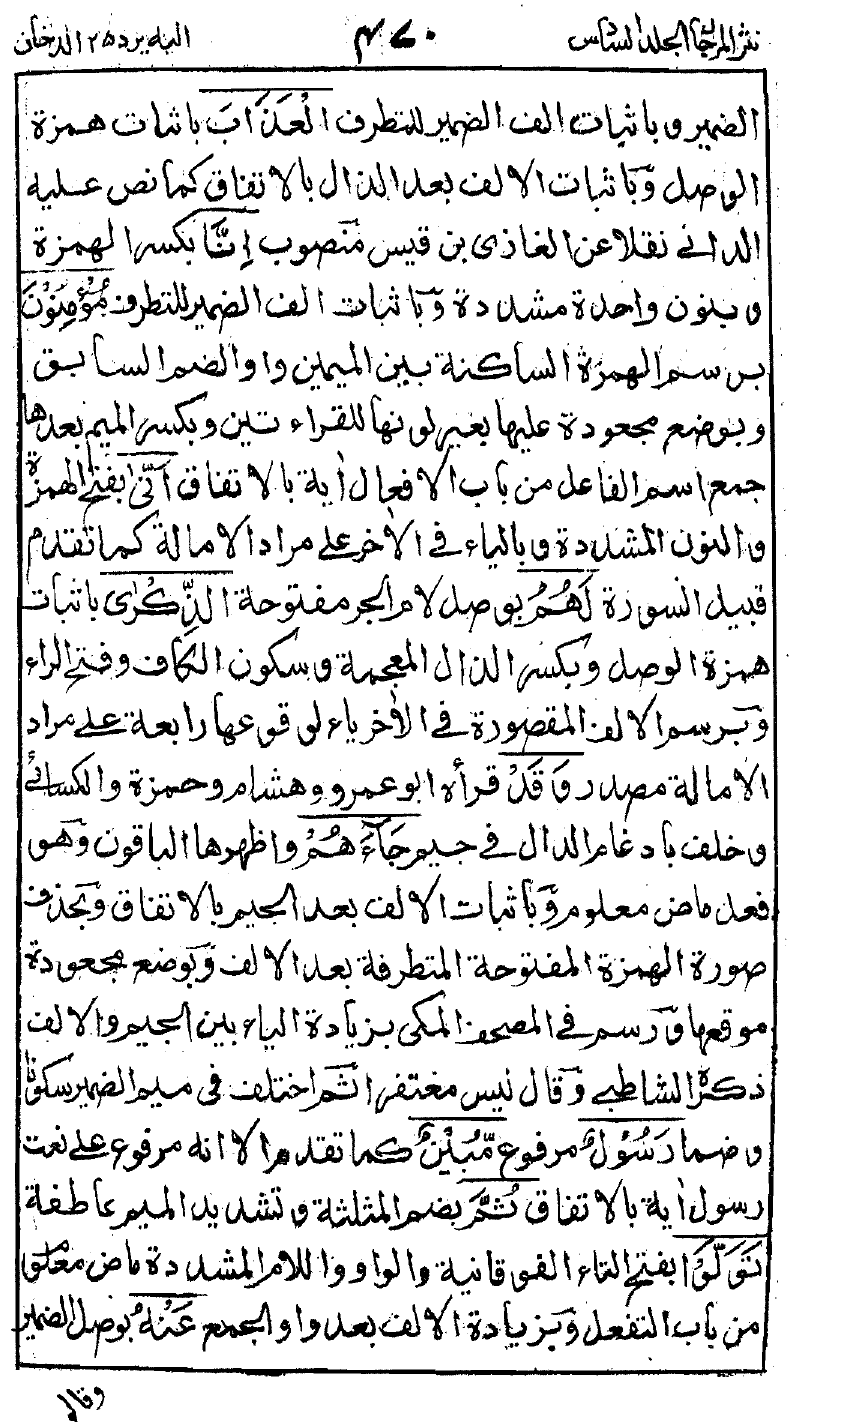 نثر المرجان الجلد السادس ٤٧٠ اليه يرد ٢٥ الدخان
الضمير و باثبات الف الضمير للتطرف الْعَذَابَ باثبات همزة
الوصل وَباثبات الالف بعد الذال بالاتفاق كما نص عليه
الدانے نقلا عن الغازى بن قيس منصوب اِنَّا بكسر الهمزة
و بنون واحدة مشددة وَباثبات الف الضمير للتطرف مُؤْمِنُوْنَ
برسم الهمزة الساكنة بين الميمين واوا لضم السابق
و بوضع مجعودة عليها بغير لونها للقراء تين و بكسر الميم بعدها
جمع اسم الفاعل من باب الافعال اٰية بالاتفاق اَنّٰى بفتح الهمزة
و النون المشددة و بالياء فے الاٰخر علے مراد الامالة كما تقدم
قبيل السورة لَهُمُ بوصل لام الجر مفتوحة الذِّكْرٰى باثبات
همزة الوصل و بكسر الذال المعجمة و سكون الكاف و فتح الراء
وَبرسم الالف المقصورة فے الاٰخر ياء لوقوعها رابعة علے مراد
الامالة مصدر وَقَدْ قرأه ابو عمرو و هشام و حمزة و الكسائے
و خلف بادغام الدال فے جيم جَآءَهُمْ و اظهرها الباقون وَهو
فعل ماض معلوم وَباثبات الالف بعد الجيم بالاتفاق وَبحذف
صورة الهمزة المفتوحة المتطرفة بعد الالف وَبوضع مجعودة
موقعها وَرسم فے المصحف المكى بزيادة الياء بين الجيم و الالف
ذكره الشاطبے وَقال ليس مغتفرا ثم اختلف فى ميم الضمير سكونا
و ضما رَسُوْلٌ مرفوع مُّبِيْنٌ كما تقدم الا انه مرفوع علے نعت
رسول اٰية بالاتفاق ثُمَّ بضم المثلثة و تشديد الميم عاطفة
تَوَلَّوْا بفتح التاء الفوقانية و الواو و اللام المشددة ماض معلوم
من باب التفعل وَبزيادة الالف بعد واو الجمع عَنْهُ بوصل الضمير
وقال